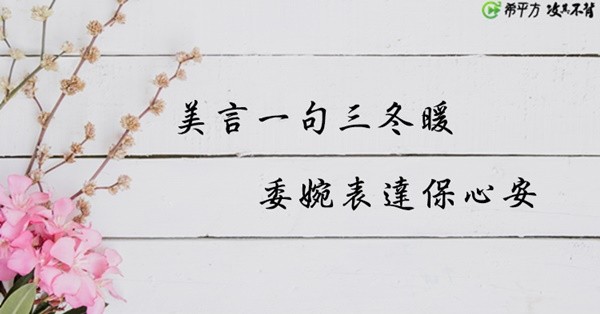 希平方 攻其不背
美言一句三冬暖
委婉表達保心安